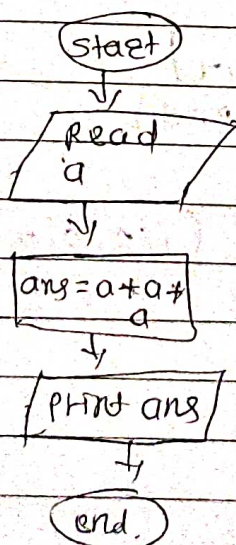 Start
Read
a
ans = a * a *
a
Print ans
end.